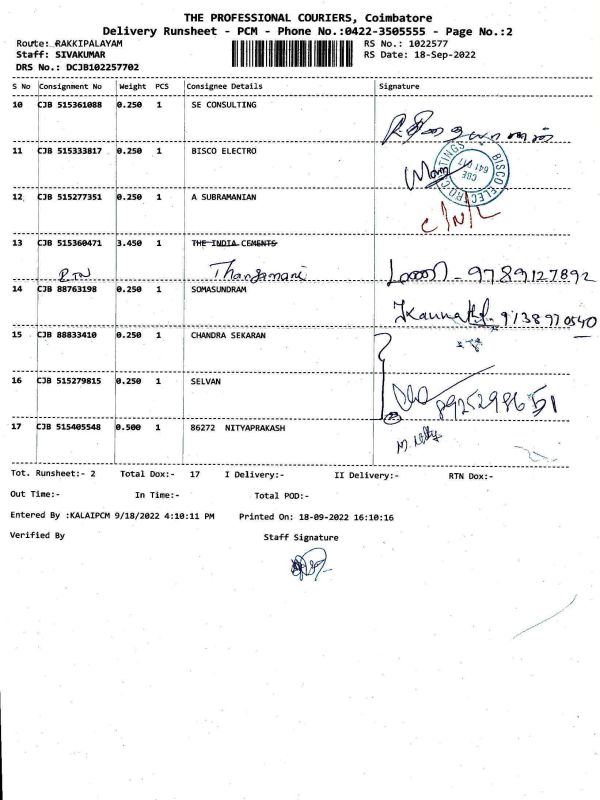 THE PROFESSIONAL COURIERS, Coimbatore
Delivery Runsheet - PCM - Phone No.:0422-3505555 - Page No.:2
Route: RAKKIPALAYAM
RS No.: 1022577
Staff: SIVAKUMAR
RS Date: 18-Sep-2022
DRS No.: DCJB102257702
S No Consignment No Weight PCS Consignee Details Signature
10 CJB 515361088 0.250 1 SE CONSULTING
11 CJB 515333817 0.250 1 BISCO ELECTRO
BISCO ELECTRO COATINGS
CBE
641 017
12 CJB 515277351 0.250 1 A SUBRAMANIAN
C/N/L
13 CJB 515360471 3.450 1 THE INDIA CEMENTS
RTN Thangamani 9789127892
14 CJB 88763198 0.250 1 SOMASUNDRAM
9138970540
15 CJB 88833410 0.250 1 CHANDRA SEKARAN
16 CJB 515279815 0.250 1 SELVAN
8925298651
17 CJB 515405548 0.500 1 86272 NITYAPRAKASH
Tot. Runsheet:- 2 Total Dox:- 17 I Delivery:- II Delivery:- RTN Dox:-
Out Time:- In Time:- Total POD:-
Entered By :KALAIPCM 9/18/2022 4:10:11 PM Printed On: 18-09-2022 16:10:16
Verified By Staff Signature